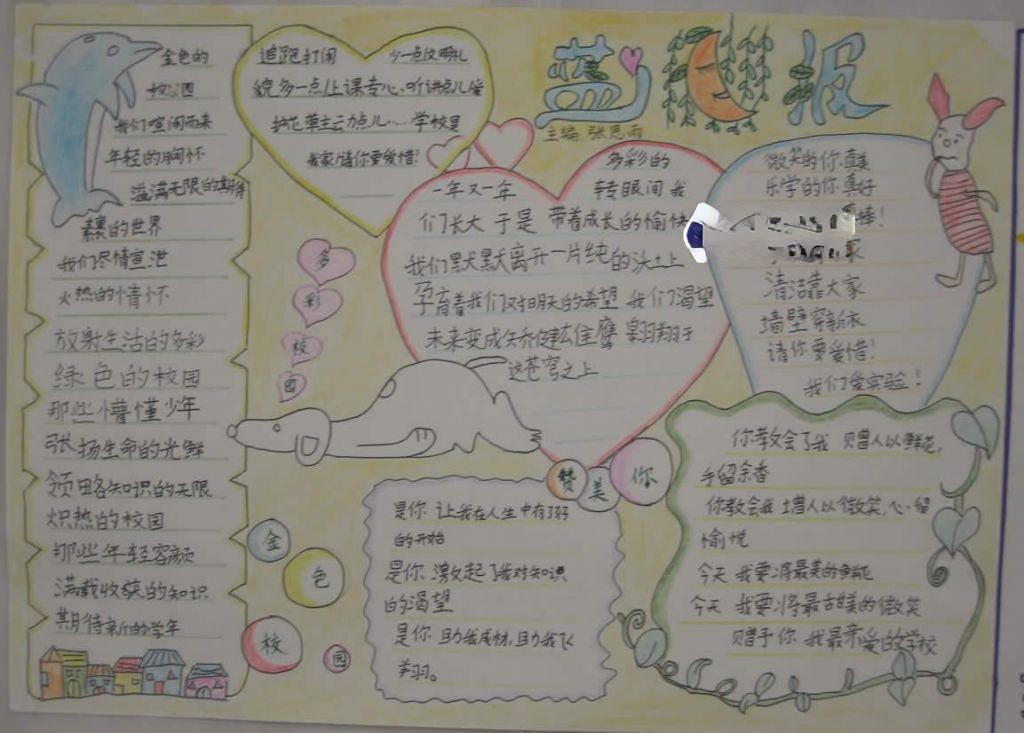 蓝月报
主编 张恩雨
金色的
校园
我们喧闹而来
年轻的胸怀
溢满无限的期待
素裹的世界
我们尽情宣泄
火热的情怀
放射生活的多彩
绿色的校园
那些懵懂少年
张扬生命的光鲜
领略知识的无限
炽热的校园
那些年轻容颜
满载收获的知识
期待新的学年
追跑打闹 少一点文明礼
貌多一点上课专心、听讲点儿爱
护花草主动点儿… 学校是
我家请你要爱惜!
多彩校园
多彩的
一年又一年 转眼间 我
们长大 于是 带着成长的愉快
我们默默离开一片纯的沃土上
孕育着我们对明天的希望 我们渴望
未来变成矢乔健雄鹰 翱翔于
这苍穹之上
微笑的你真美
乐学的你真好
棒!
家
清洁靠大家
墙壁穿新衣
请你要爱惜!
我们爱实验!
金色校园
赞美你
是你 让我在人生中有了好
的开始
是你 激起了我对知识
的渴望
是你 助我成材,助我飞
羽。
你教会了我 赠人以鲜花,
手留余香
你教会我 赠人以微笑,心留
愉悦
今天 我要将最美的鲜花
今天 我要将最甜美的微笑
赠予你 我最亲爱的学校